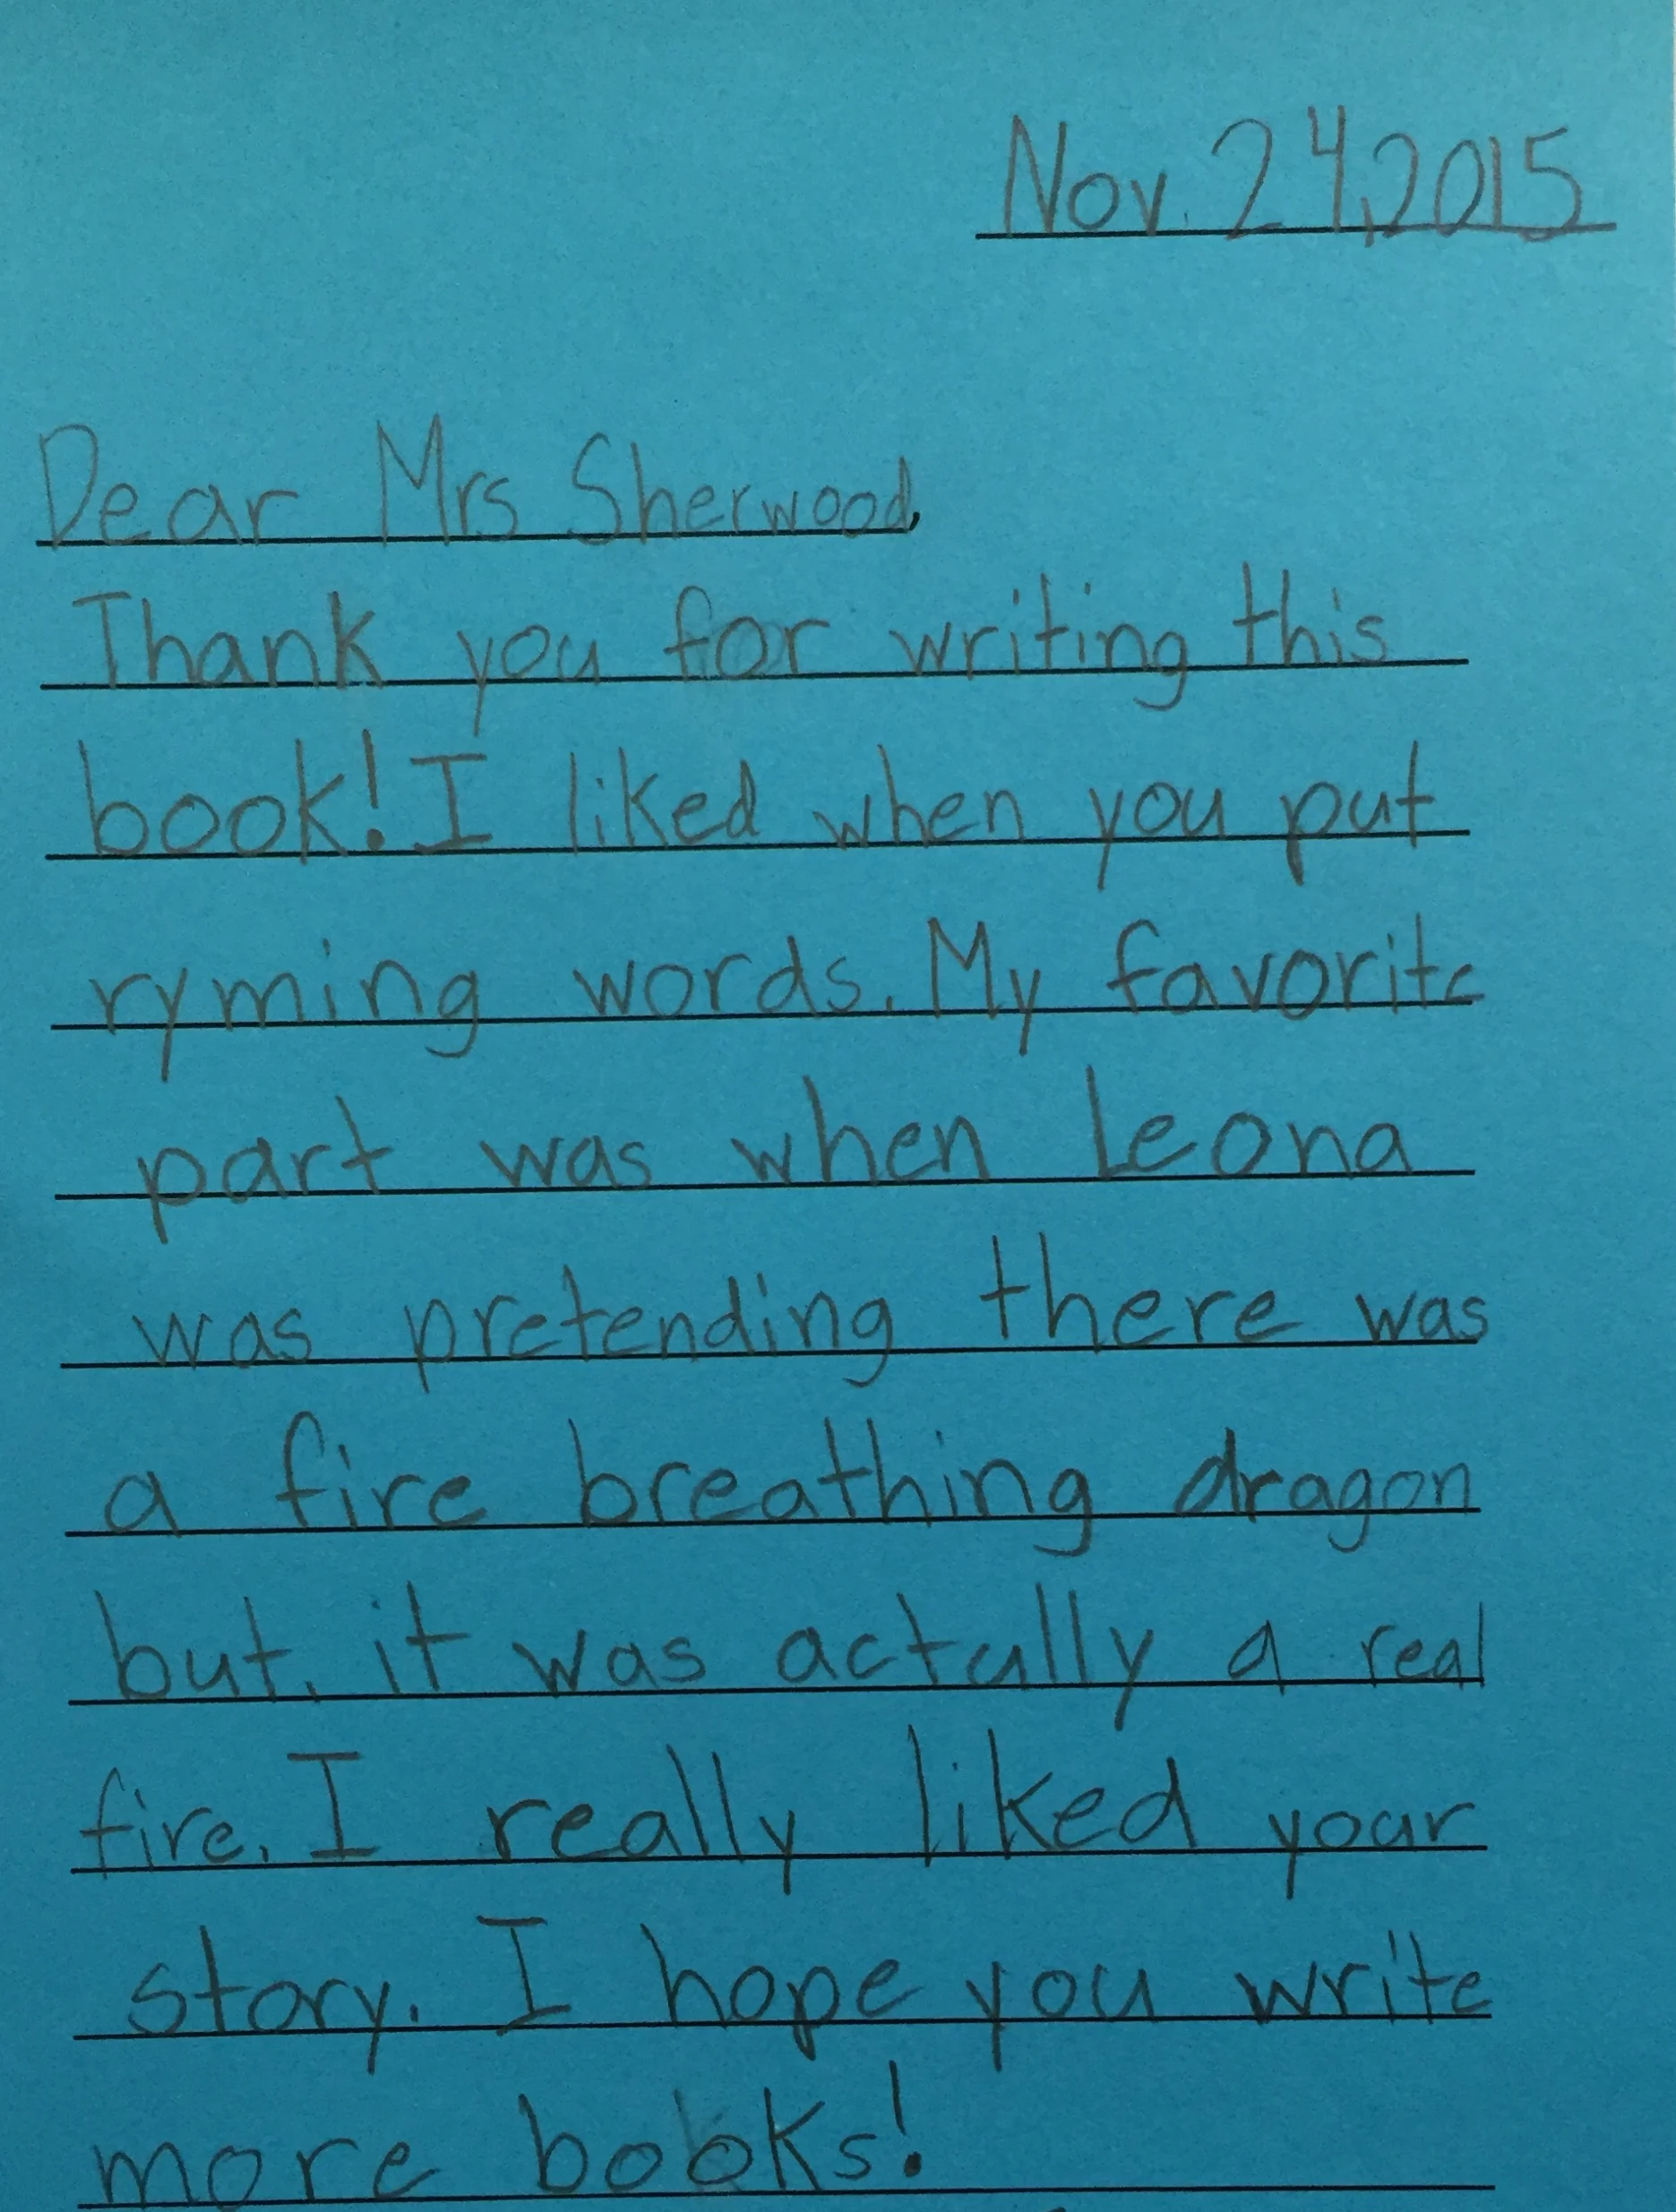 Nov. 24, 2015
Dear Mrs Sherwood,
Thank you for writing this
book! I liked when you put
ryming words. My favorite
part was when Leona
was pretending there was
a fire breathing dragon
but, it was actully a real
fire. I really liked your
story. I hope you write
more books!